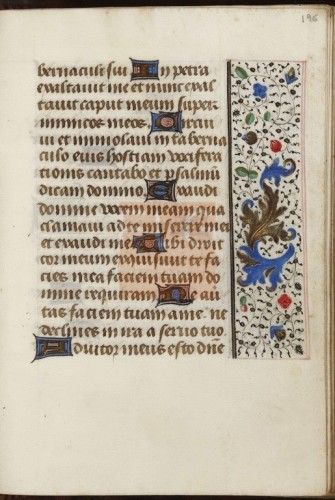 196
bernaculi sui In petra
exaltavit me et nunc exal
tavit caput meum super
inimicos meos Circui
vi et immolavi in taberna
culo eius hostiam vocifera
tionis cantabo et psalmū
dicam domino Exaudi
domine vocem meam qua
clamavi ad te miserere mei
et exaudi me Tibi dixit
cor meum exquisivit te fa
cies mea faciem tuam do
mine requiram Ne aver
tas faciem tuam a me ne
declines in ira a servo tuo
Adiutor meus esto dn̄e